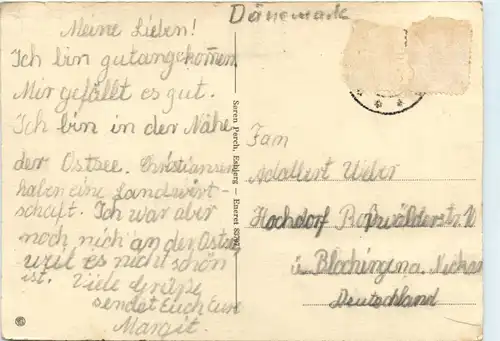 Dänemark
Meine Lieben!
Ich bin gutangekom̄en.
Mir gefällt es gut.
Ich bin in der Nähe
der Ostsee. Christiansen
haben eine Landwirt-
schaft. Ich war aber
noch nich an der Ostsee
weil es nicht schön
ist. Viele Grüße
sendet Euch Eure
Margit.
Søren Perch, Esbjerg — Eneret
Fam
Adalbert Weber
Hochdorf Roßwälderstr. 10
ü. Blochingen a. Neckar
Deutschland